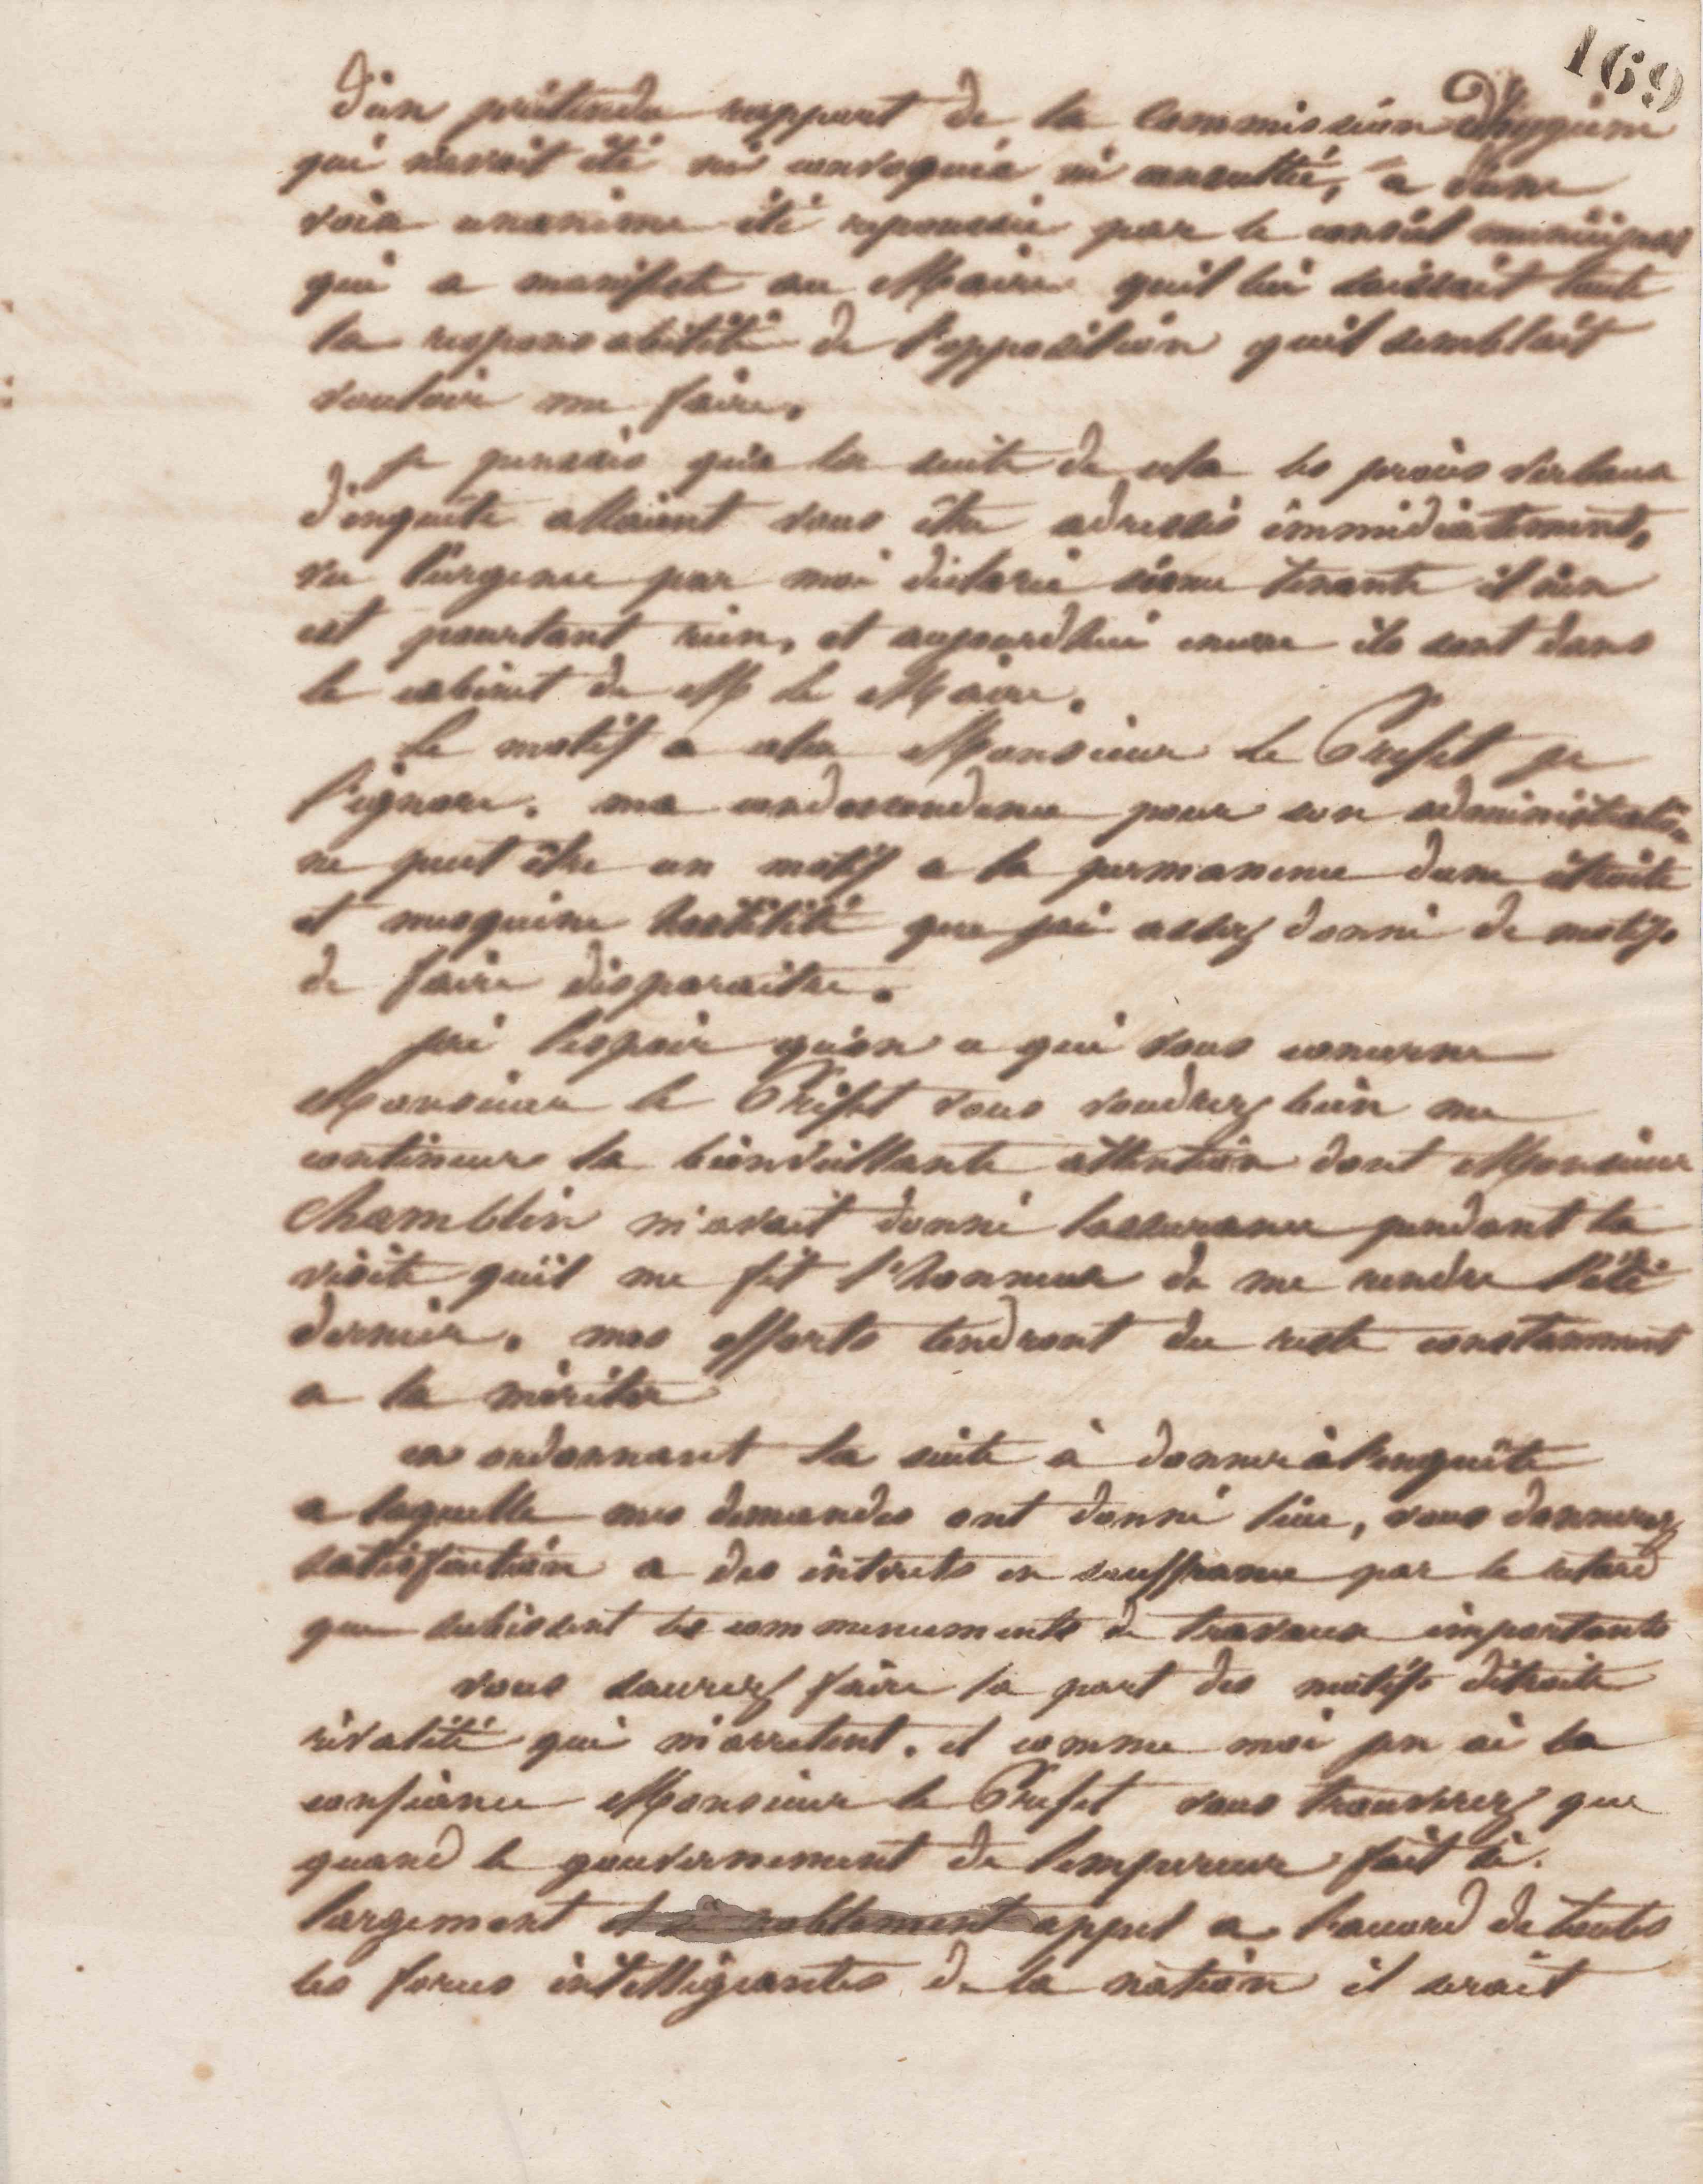 169
d'un prétendu rapport de la Commission d'hygiène
qui n'avait été ni convoquée ni consultée, a d'une
voix unanime été repoussée par le conseil municipal
qui a manifesté au Maire quil lui laissait toute
la responsabilité de l'opposition quil semblait
vouloir me faire.
je pensais qu'a la suite de cela les procès verbaux
d'enquête allaient vous être adressés immédiatement,
vu l'urgence par moi déclarée séance tenante il n'en
est pourtant rien, et aujourdhui encore ils sont dans
le cabinet de M le Maire.
Le motif a cela Monsieur le Préfet je
l'ignore. ma condescendence pour son administration
ne peut être un motif a la permanence dune étroite
et mesquine hostilité que jai assez donné de motifs
de faire disparaitre.
jai l'espoir qu'en ce qui vous concerne
Monsieur le Préfet vous voudrez bien me
continuer la bienveillante attention dont Monsieur
Chamblin m'avait donné lassurance pendant la
visite qu'il me fit l'honneur de me rendre l'été
dernier. mes efforts tendront du reste constamment
a la mériter
en ordonnant la suite à donner à l'enquête
a laquelle mes demandes ont donné lieu, vous donnerez
satisfaction a des intérets en souffrance par le retard
que subissent les commencements de travaux importants
vous saurez faire la part des motifs détroite
rivalité qui m'arretent. et comme moi jen ai la
confiance Monsieur le Préfet vous trouverez que
quand le gouvernement de l'empereur fait si
largement et si noblement appel a l'accord de toutes
les forces intelligeantes de la nation il serait